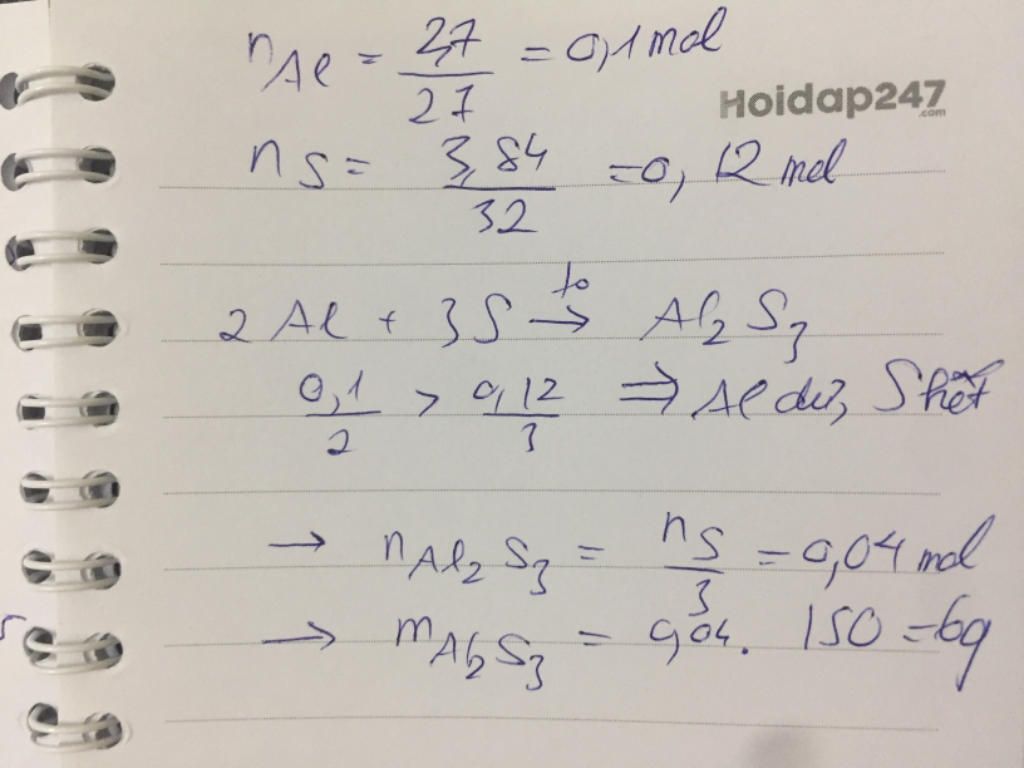 nAl = 2,7/27 = 0,1 mol
Hoidap247
.com
nS = 3,84/32 = 0,12 mol
2Al + 3S →(to) Al₂S₃
0,1/2 > 0,12/3 ⇒ Al dư, S hết
→ nAl₂S₃ = nS/3 = 0,04 mol
→ mAl₂S₃ = 0,04. 150 = 6g